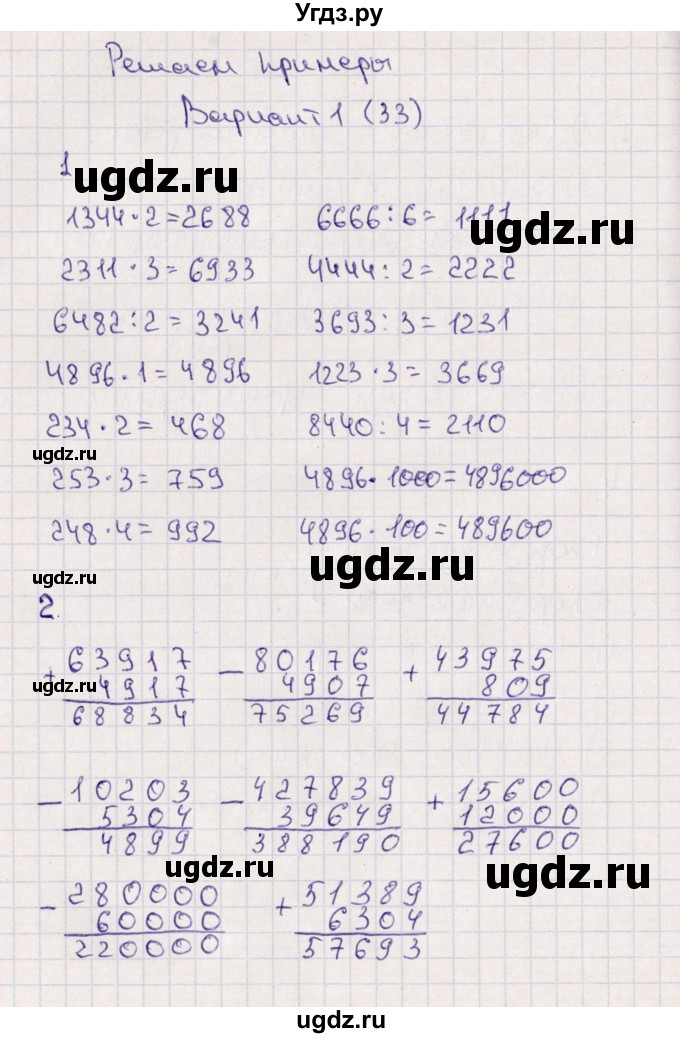 Угдз.ру
Решаем примеры
Вариант 1 (33)
1
ugdz.ru
1344·2=2688 6666:6= 1111
ugdz.ru
2311·3=6933 4444:2=2222
6482:2=3241 3693:3=1231
4896·1=4896 1223·3=3669
234·2=468 8440:4=2110
ugdz.ru
253·3=759 4896·1000=4896000
248·4=992 4896·100=489600
ugdz.ru
ugdz.ru
2.
+63917 −80176 +43975
4917 4907 809
ugdz.ru
68834 75269 44784
−10203 −427839 +15600
5304 39649 12000
4899 388190 27600
ugdz.ru
ugdz.ru
−280000 +51389
60000 6304
220000 57693
ugdz.ru